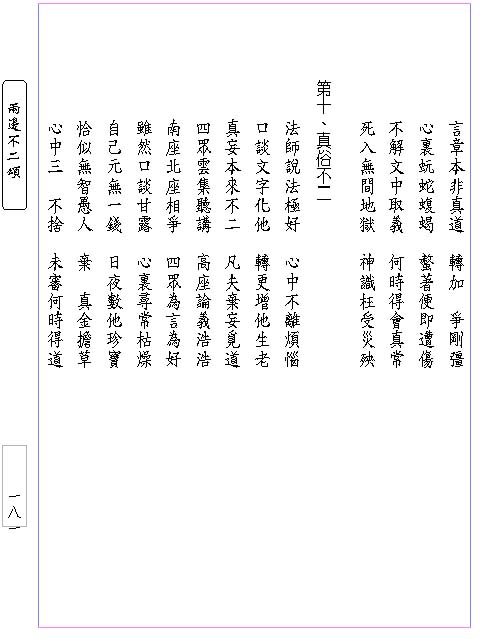 言章本非真道　轉加　爭剛彊
心裏蚖蛇蝮蝎　螫著便即遭傷
不解文中取義　何時得會真常
死入無間地獄　神識枉受災殃
第十、真俗不二
法師說法極好　心中不離煩惱
口談文字化他　轉更增他生老
真妄本來不二　凡夫棄妄覓道
四眾雲集聽講　高座論義浩浩
南座北座相爭　四眾為言為好
雖然口談甘露　心裏尋常枯燥
自己元無一錢　日夜數他珍寶
恰似無智愚人　棄　真金擔草
心中三　不捨　未審何時得道
兩邊不二頌
一八一